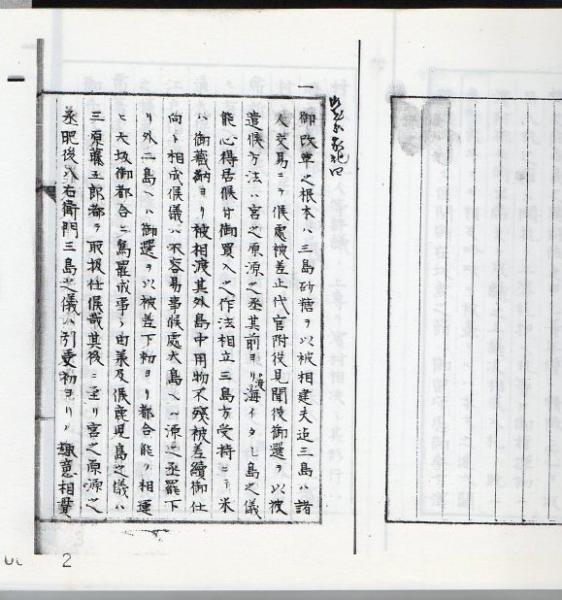 一御改革之根本ハ三島砂糖ヲ以被相建夫迄三島ハ諸
人交易ニテ候處被差止代官附役見聞役御選ヲ以被
遣候方法ハ宮之原源之丞其前ヨリ渡海イタシ島之儀
能心得居候付御買入之作法相立三島方受持ニテ米
ハ御蔵納ヨリ被相渡其外島中用物不残被差續御仕
向ト相成候儀ハ不容易事候處大島ヘハ源之丞罷下
リ外二島ヘハ御選ヲ以被差下初ヨリ都合能ク相運
ヒ大坂御都合ニ罷成事ト由業及候處現島之儀ハ
三原藤五郎都テ取扱仕候哉其後ニ至リ宮之原源之
丞肥後八右衛門三島之儀ハ引受初ヨリノ趣意相貫
2